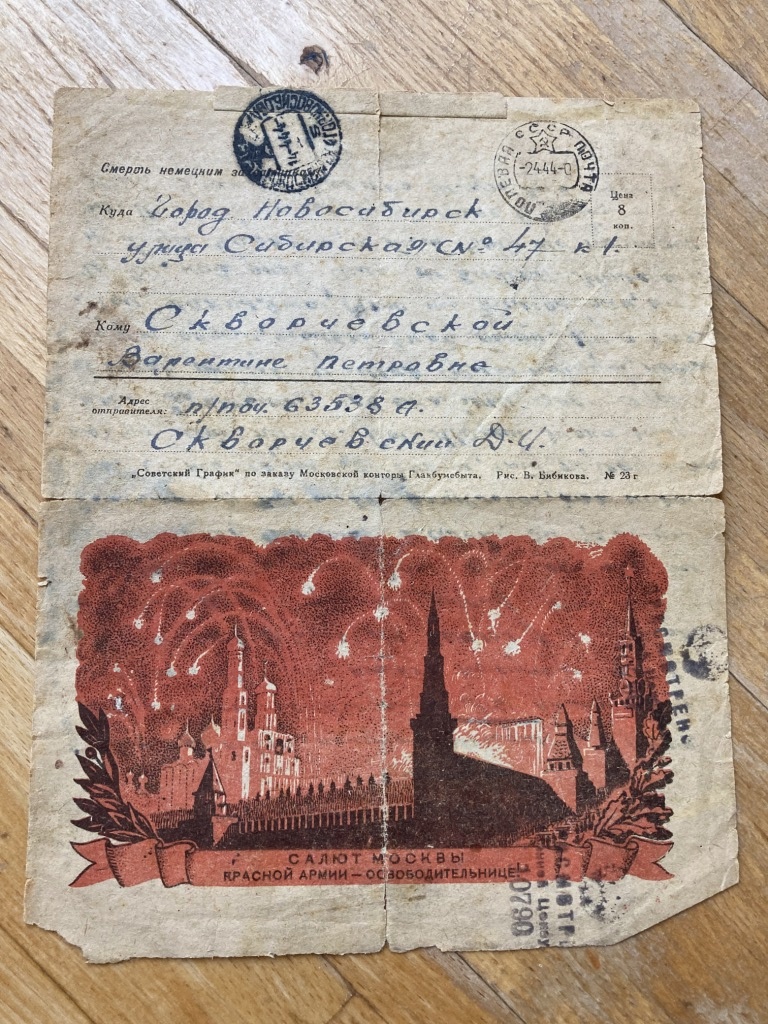 ПОЛЕВАЯ СССР ПОЧТА
-2.4.44-0
НОВОСИБ
Смерть немецким
Цена
8
коп.
Куда Город Новосибирск
улица Сибирская № 47 к 1.
Кому Скворчевской
Варентине Петровне
Адрес
отправителя: п/поч. 63538 А.
Скворчевский Д.И.
„Советский График" по заказу Московской конторы Главбумсбыта. Рис. В. Бибикова. № 23 г
САЛЮТ МОСКВЫ
КРАСНОЙ АРМИИ — ОСВОБОДИТЕЛЬНИЦЕ!
10790